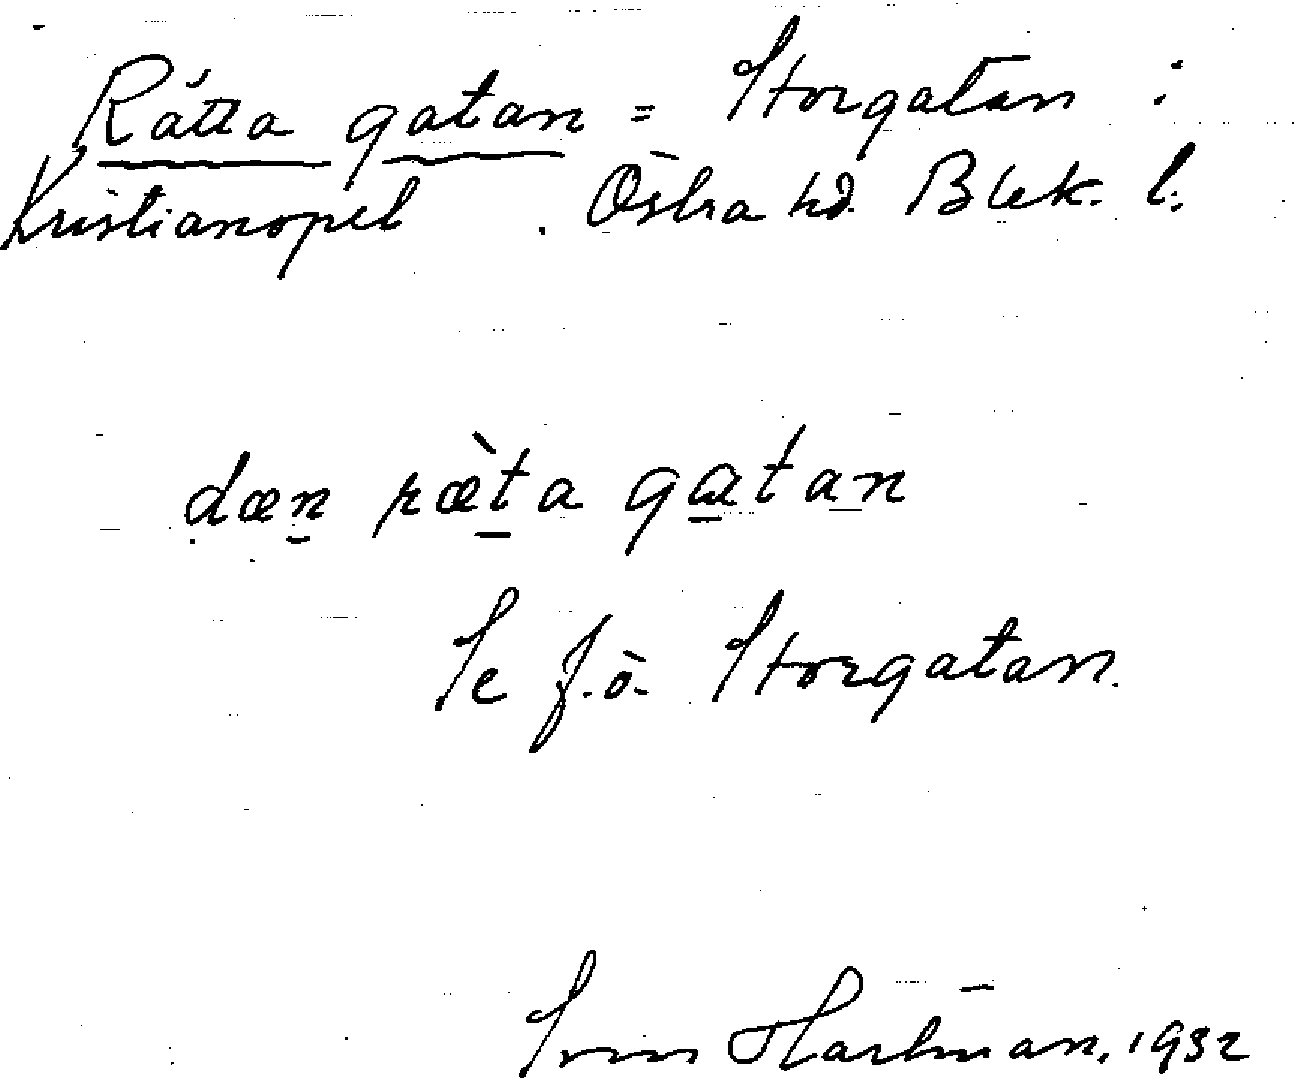 Rätta gatan = Storgatan i
Kristianopel. Östra hd. Blek. l.
dæn ræ̀ta gɑtan
Se f.ö. Storgatan.
Sven Hartman. 1932